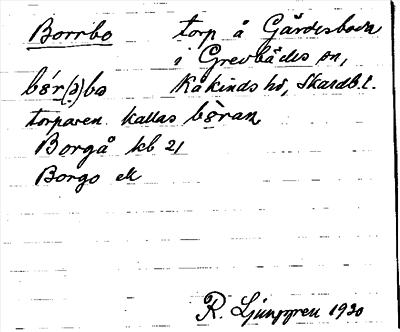 Borrbo torp å Gärdesboda
i Grevbäcks sn,
bör(ə)bo Kåkinds hd, Skarab. l.
torparen kallas böran
Borgå kb 21
Borgo ek
R. Ljunggren 1930